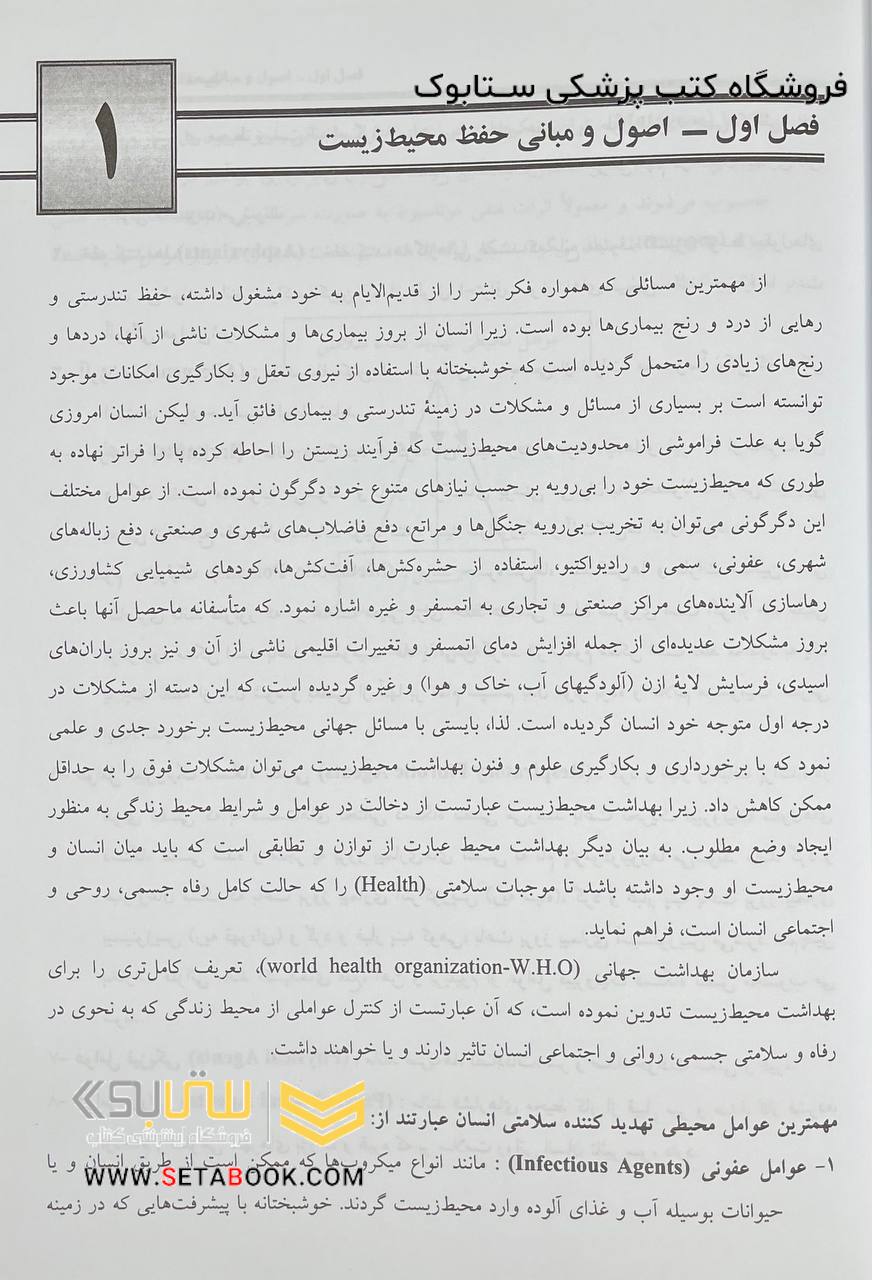 فروشگاه کتب پزشکی ستابوک
۱
فصل اول – اصول و مبانی حفظ محیط‌زیست
از مهمترین مسائلی که همواره فکر بشر را از قدیم‌الایام به خود مشغول داشته، حفظ تندرستی و
رهایی از درد و رنج بیماری‌ها بوده است. زیرا انسان از بروز بیماری‌ها و مشکلات ناشی از آنها، دردها و
رنج‌های زیادی را متحمل گردیده است که خوشبختانه با استفاده از نیروی تعقل و بکارگیری امکانات موجود
توانسته است بر بسیاری از مسائل و مشکلات در زمینۀ تندرستی و بیماری فائق آید. و لیکن انسان امروزی
گویا به علت فراموشی از محدودیت‌های محیط‌زیست که فرآیند زیستن را احاطه کرده پا را فراتر نهاده به
طوری که محیط‌زیست خود را بی‌رویه بر حسب نیازهای متنوع خود دگرگون نموده است. از عوامل مختلف
این دگرگونی می‌توان به تخریب بی‌رویه جنگل‌ها و مراتع، دفع فاضلاب‌های شهری و صنعتی، دفع زباله‌های
شهری، عفونی، سمی و رادیواکتیو، استفاده از حشره‌کش‌ها، آفت‌کش‌ها، کودهای شیمیایی کشاورزی،
رهاسازی آلاینده‌های مراکز صنعتی و تجاری به اتمسفر و غیره اشاره نمود. که متأسفانه ماحصل آنها باعث
بروز مشکلات عدیده‌ای از جمله افزایش دمای اتمسفر و تغییرات اقلیمی ناشی از آن و نیز بروز باران‌های
اسیدی، فرسایش لایۀ ازن (آلودگیهای آب، خاک و هوا) و غیره گردیده است، که این دسته از مشکلات در
درجه اول متوجه خود انسان گردیده است. لذا، بایستی با مسائل جهانی محیط‌زیست برخورد جدی و علمی
نمود که با برخورداری و بکارگیری علوم و فنون بهداشت محیط‌زیست می‌توان مشکلات فوق را به حداقل
ممکن کاهش داد. زیرا بهداشت محیط‌زیست عبارتست از دخالت در عوامل و شرایط محیط زندگی به منظور
ایجاد وضع مطلوب. به بیان دیگر بهداشت محیط عبارت از توازن و تطابقی است که باید میان انسان و
محیط‌زیست او وجود داشته باشد تا موجبات سلامتی (Health) را که حالت کامل رفاه جسمی، روحی و
اجتماعی انسان است، فراهم نماید.
سازمان بهداشت جهانی (world health organization-W.H.O)، تعریف کامل‌تری را برای
بهداشت محیط‌زیست تدوین نموده است، که آن عبارتست از کنترل عواملی از محیط زندگی که به نحوی در
رفاه و سلامتی جسمی، روانی و اجتماعی انسان تاثیر دارند و یا خواهند داشت.
مهمترین عوامل محیطی تهدید کننده سلامتی انسان عبارتند از:
۱- عوامل عفونی (Infectious Agents) : مانند انواع میکروب‌ها که ممکن است از طریق انسان و یا
حیوانات بوسیله آب و غذای آلوده وارد محیط‌زیست گردند. خوشبختانه با پیشرفت‌هایی که در زمینه
ستابوک
فروشگاه اینترنتی کتاب
WWW.SETABOOK.COM